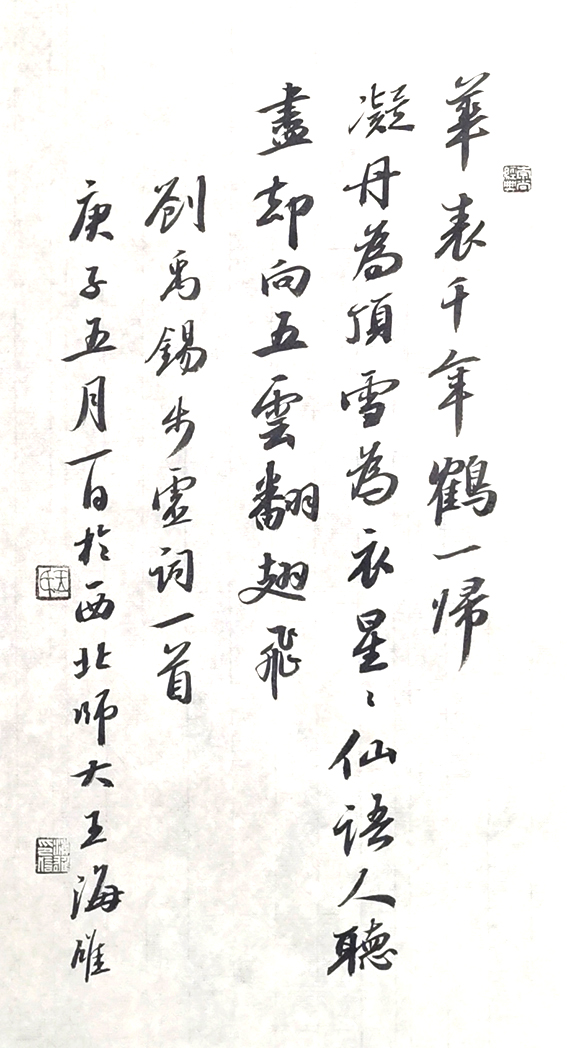 華表千年鶴一歸
凝丹為頂雪為衣星〻仙語人聽
盡却向五雲翻翅飛
劉禹錫步虛詞一首
庚子五月一日於西北師大王海雄